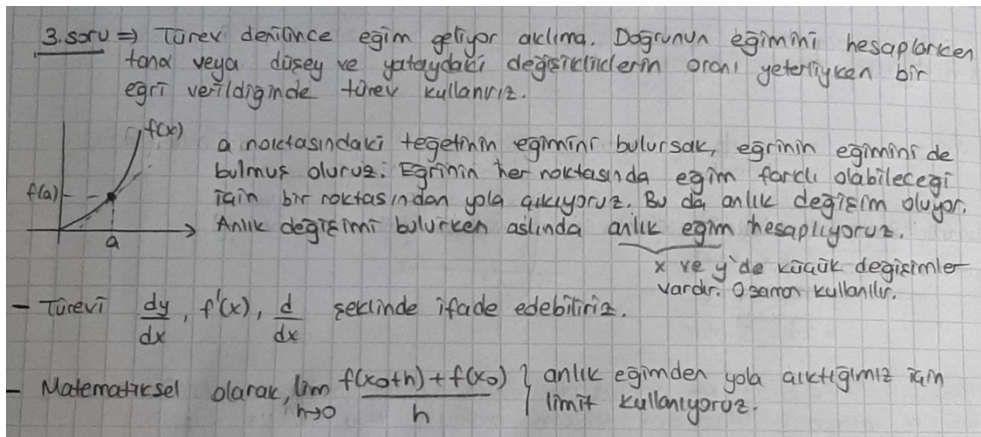 3. soru => Türev denilince eğim geliyor aklıma. Doğrunun eğimini hesaplarken
tanα veya düşey ve yataydaki değişikliklerin oranı yeterliyken bir
eğri verildiğinde türev kullanırız.
f(x)
f(a)
a
a noktasındaki teğetinin eğimini bulursak, eğrinin eğimini de
bulmuş oluruz. Eğrinin her noktasında eğim farklı olabileceği
için bir noktasından yola çıkıyoruz. Bu da anlık değişim oluyor.
Anlık değişimi bulurken aslında anlık eğim hesaplıyoruz.
x ve y'de küçük değişimler
vardır. O zaman kullanılır.
- Türevi dy/dx, f'(x), d/dx şeklinde ifade edebiliriz.
- Matematiksel olarak, lim h→0 f(x₀+h)+f(x₀)/h } anlık eğimden yola çıktığımız için
limit kullanıyoruz.